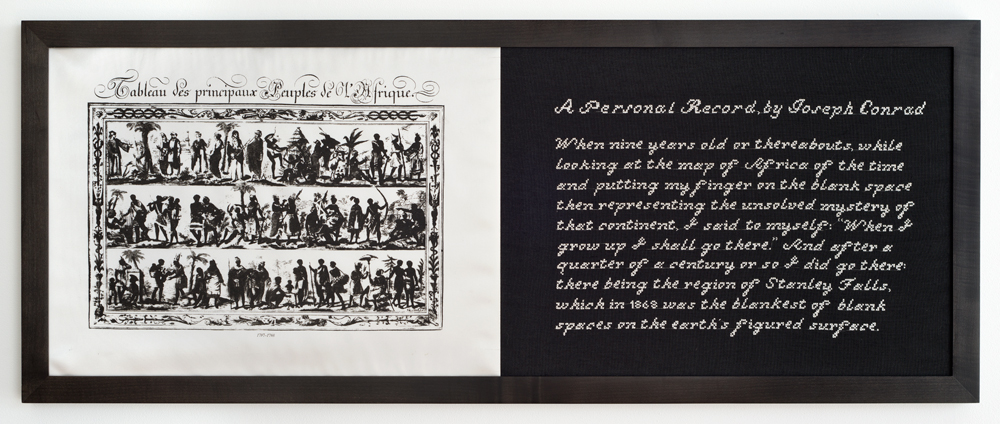 Tableau des principaux Peuples de l'Afrique.
A Personal Record, by Joseph Conrad
When nine years old or thereabouts, while
looking at the map of Africa of the time
and putting my finger on the blank space
then representing the unsolved mystery of
that continent, I said to myself: "When I
grow up I shall go there." And after a
quarter of a century or so I did go there:
there being the region of Stanley Falls,
which in 1868 was the blankest of blank
spaces on the earth's figured surface.